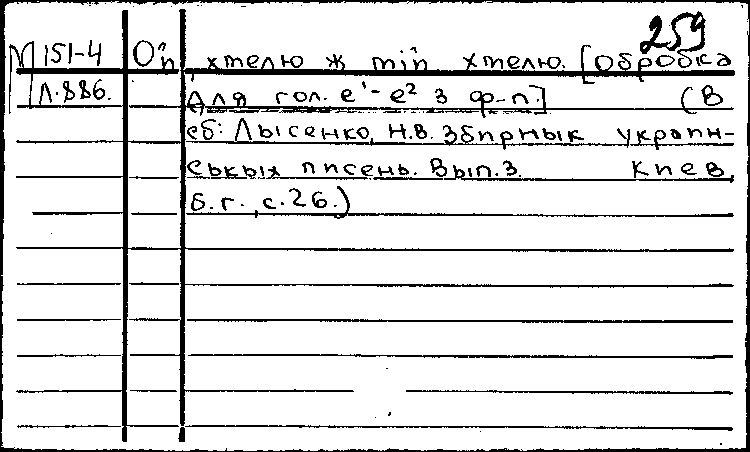 259
М 151-4 Ой, хмелю ж мій хмелю. [Обробка
Л.886. для гол. е¹-е² з ф-п.] (В
сб: Лысенко, Н.В. Збирнык украин-
ськых писень. Вып.3. Киев,
б.г., с.26.)